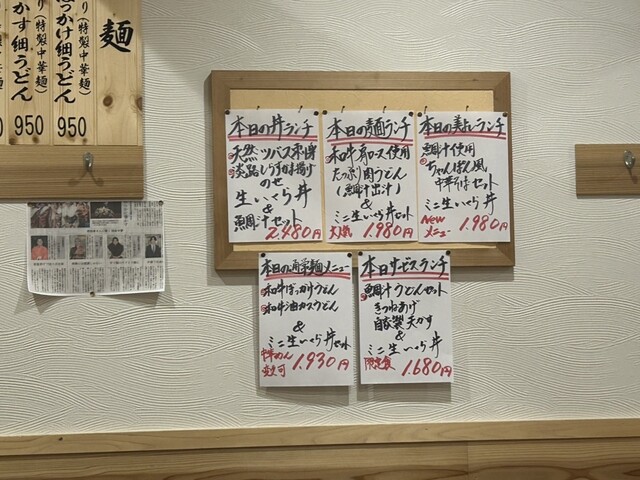 麺
り(特製中華麺)
かす細うどん
950
っかけ細うどん
950
本日の丼ランチ
天然ツバス刺身
淡路しらすかき揚げ
のせ
生いくら丼
&
鯛汁セット
2.480円
本日の麺ランチ
和牛肩ロース使用
たっぷり肉うどん
(鯛汁出汁)
&
ミニ生いくら丼セット
大人気
1.980円
本日の美味しいランチ
鯛汁使用
ちゃんぽん風
中華そばセット
&
ミニ生いくら丼
New
メニュー
1.980円
メニュー
和牛ぼっかけうどん
和牛油カスうどん
&
ミニ生いくら丼セット
中華めん
変更可
1.930円
本日サービスランチ
鯛汁うどんセット
きつねあげ
自家製天かす
&
ミニ生いくら丼
限定食
1.680円